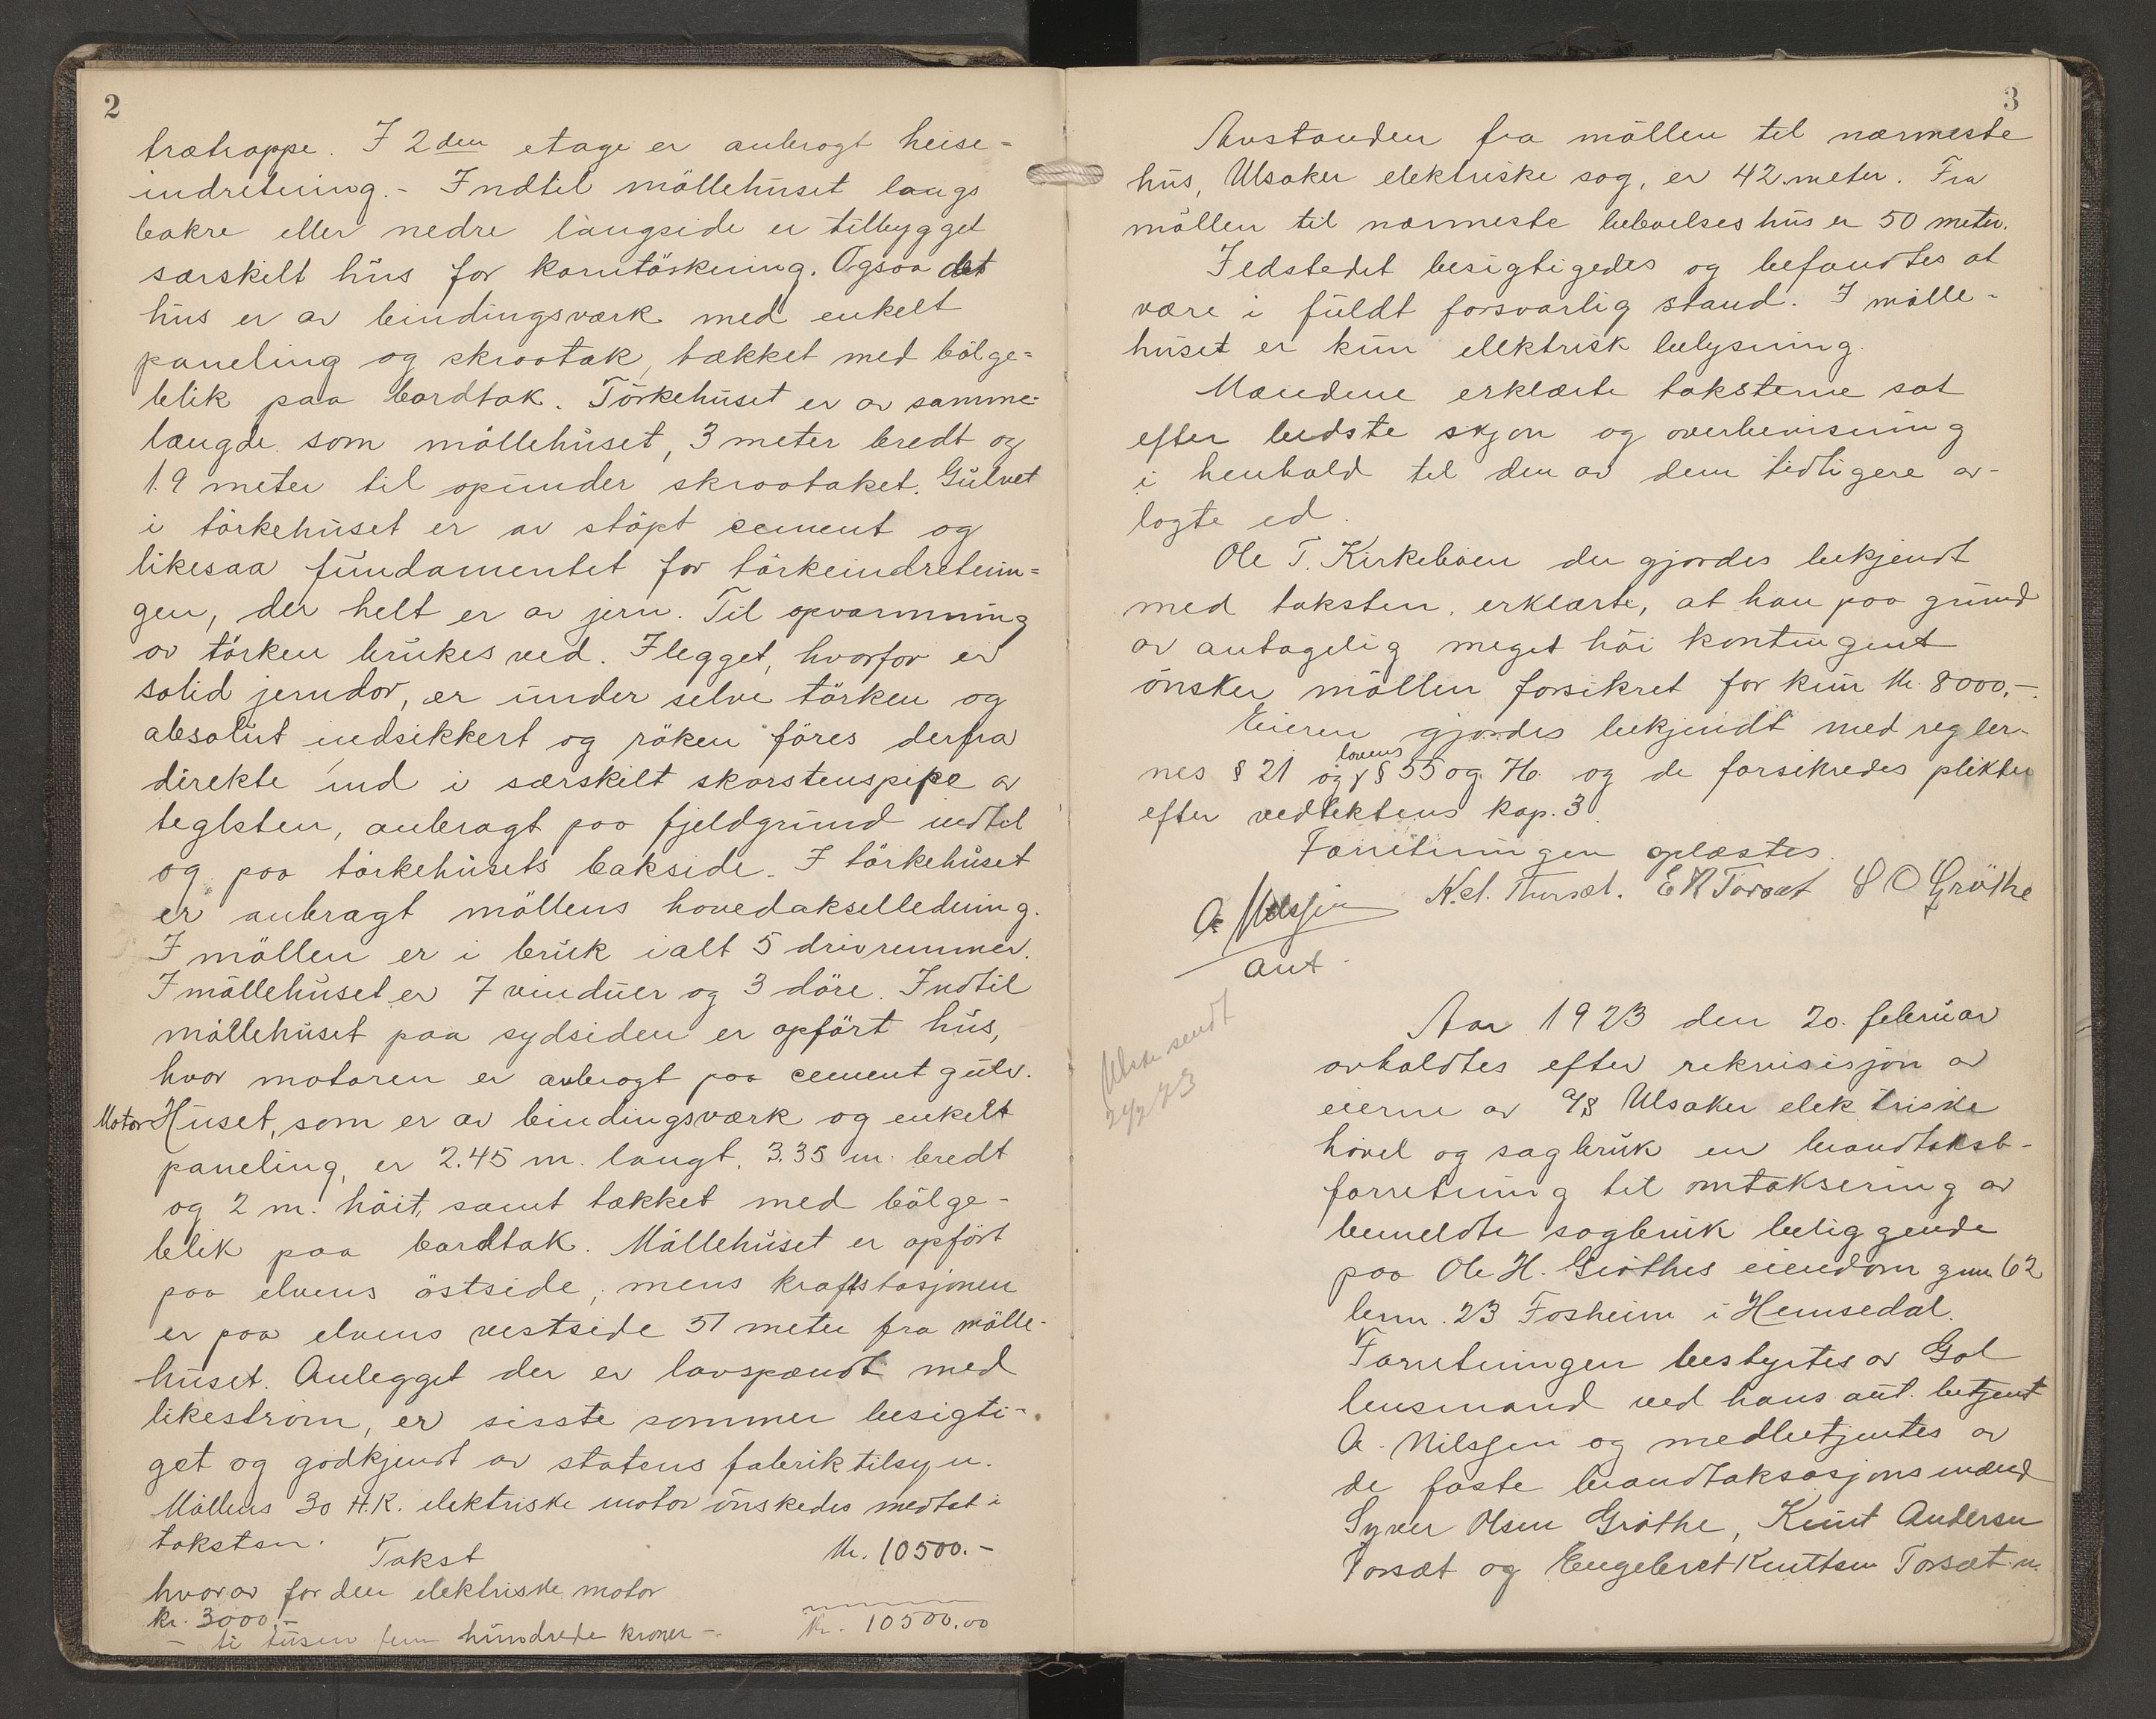 2
trætrappe. I 2den etage er anbragt heise-
indretning. - Indtil möllehuset langs
bakre eller nedre langside er tilbygget
særskilt hus for korntörkning. Ogsaa det
hus er av bindingsværk med enkelt
paneling og skraatak, tækket med bölge-
blik paa bordtak. Törkehuset er av samme
længde som möllehuset, 3 meter bredt og
1.9 meter til opunder skraataket. Gulvet
i törkehuset er av stöpt cement og
likesaa fundamentet for törkeindretnin-
gen, der helt er av jern. Til opvarmning
av törken brukes ved. Ilegget, hvorfor er
solid jerndör, er under selve törken og
absolut indsikkert og röken föres derfra
direkte ind i særskilt skorstenspipe av
teglsten, anbragt paa fjeldgrund indtil
og paa törkehusets bakside. I törkehuset
er anbragt möllens hovedakselledning.
I möllen er i bruk ialt 5 drivremmer.
I möllehuset er 7 vinduer og 3 döre. Indtil
möllehuset paa sydsiden er opfört hus,
hvor motoren er anbragt paa cementgulv.
Motor Huset, som er av bindingsværk og enkelt
paneling, er 2.45 m. langt, 3.35 m. bredt
og 2 m. höit, samt tækket med bölge-
blik paa bordtak. Möllehuset er opfört
paa elvens östside, mens kraftstasjonen
er paa elvens vestside 51 meter fra mölle-
huset. Anlegget der er lavspændt med
likeström, er sisste sommer besigti-
get og godkjendt av statens fabriktilsyn.
Möllens 30 H.K. elektriske motor önskedes medtat i
taksten.
Takst Kr. 10500.-
hvorav for den elektriske motor
kr. 3000.-
Kr. 10500.00
- ti tusen fem hundrede kroner -
3
Avstanden fra möllen til nærmeste
hus, Ulsaker elektriske sag, er 42 meter. Fra
möllen til nærmeste beboelseshus er 50 meter.
Ildstedet besigtigedes og befandtes at
være i fuldt forsvarlig stand. I mölle-
huset er kun elektrisk belysning.
Mændene erklærte taksterne sat
efter bedste skjön og overbevisning
i henhold til den av dem tidligere av-
lagte ed.
Ole T. Kirkeböen der gjordes bekjendt
med taksten, erklærte, at han paa grund
av antagelig meget höi kontingent
önsker möllen forsikret for kun kr. 8000,-.
Eieren gjordes bekjendt med regler-
nes § 21 og lovens § 55 og 76. og de forsikredes plikter
efter vedtektens kap. 3.
Forretningen oplæstes.
A. Nilssen K.A. Torsæt. E K Torsæt S O Gröthe
aut.
Aar 1923 den 20. februar
avholdtes efter rekvisisjon av
eierne av A/S Ulsaker elektriske
hövel og sagbruk en brandtakst-
forretning til omtaksering av
bemeldte sagbruk beliggende
paa Ole H. Gröthes eiendom gnr. 62
brnr. 23 Fosheim i Hemsedal.
Forretningen bestyrtes av Gol
lensmand ved hans aut. betjent
A. Nilssen og medbetjentes av
de faste brandtaksasjonsmænd
Syver Olsen Gröthe, Knut Andersen
Torsæt og Engebret Knutsen Torsæt n.